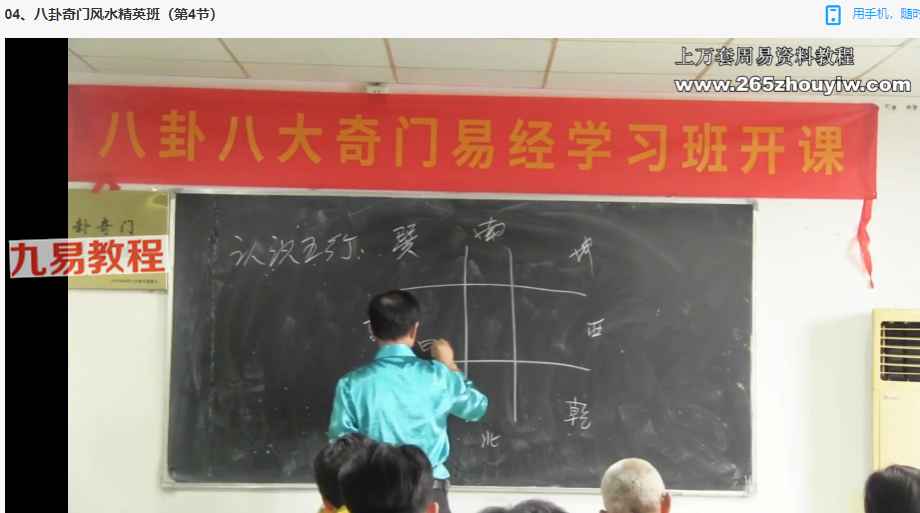 04、八卦奇门风水精英班（第4节）
用手机，随时
上万套周易资料教程
www.265zhouyiw.com
八卦八大奇门易经学习班开课
卦奇门
九易教程
认识五行、
巽 南 坤
西
乾
北